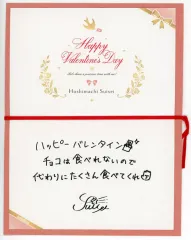 Happy
Valentine's Day
Hoshimachi Suisei
ハッピーバレンタイン
チョコは食べれないので
代わりにたくさん食べてくれ